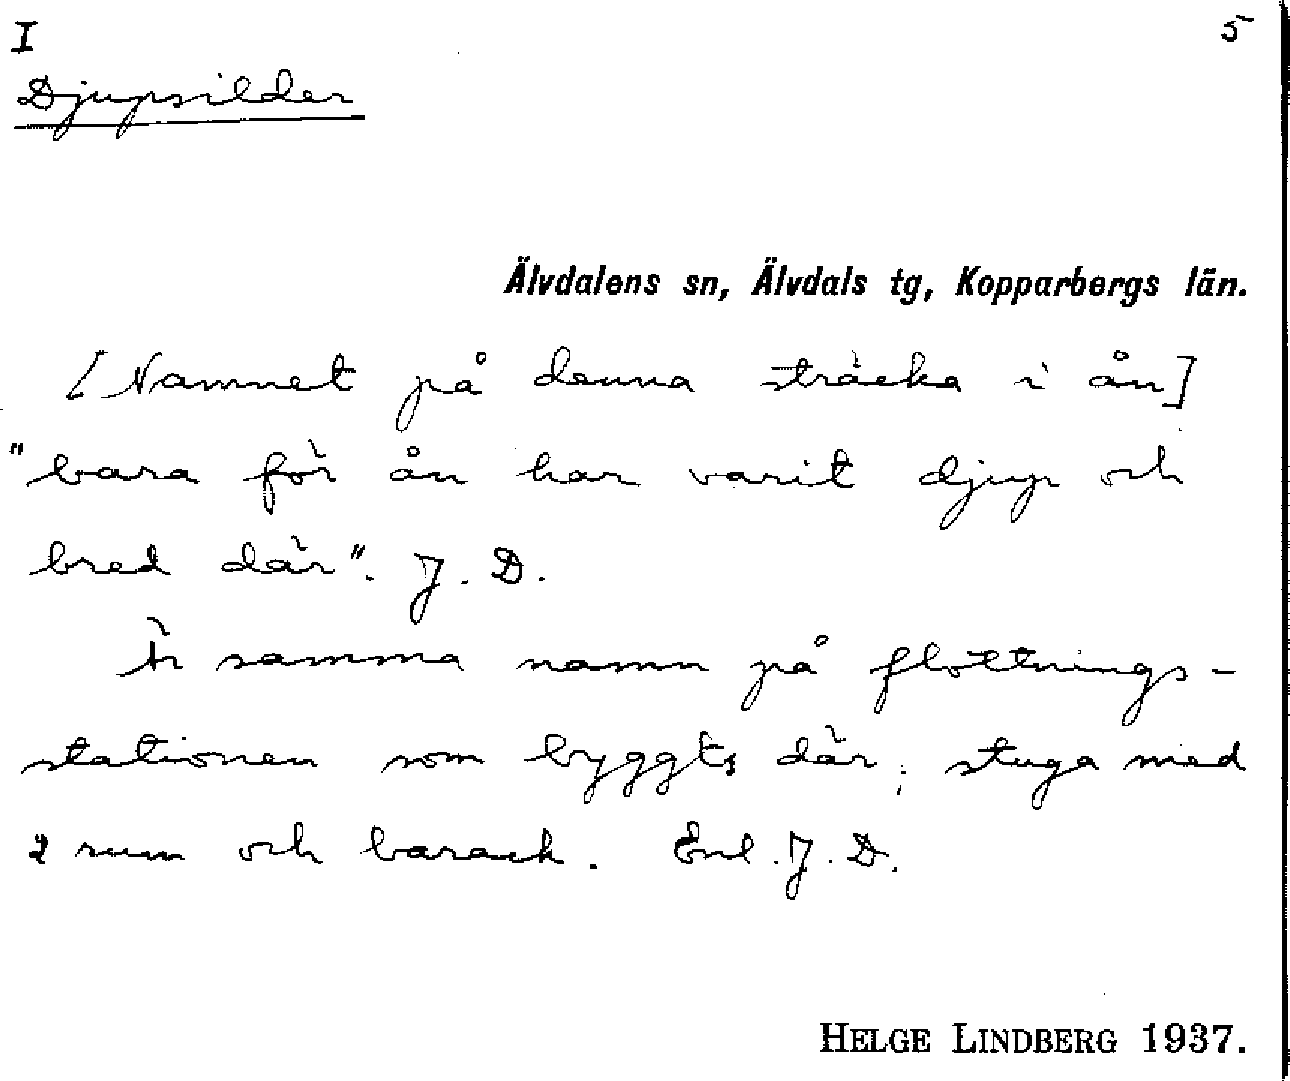 I 5
Djupsilder
Älvdalens sn, Älvdals tg, Kopparbergs län.
[Namnet på denna sträcka i ån]
"bara för ån har varit djup och
bred där". J. D.
Är samma namn på flottnings-
stationen som byggts där; stuga med
2 rum och barack. Enl. J. D.
HELGE LINDBERG 1937.